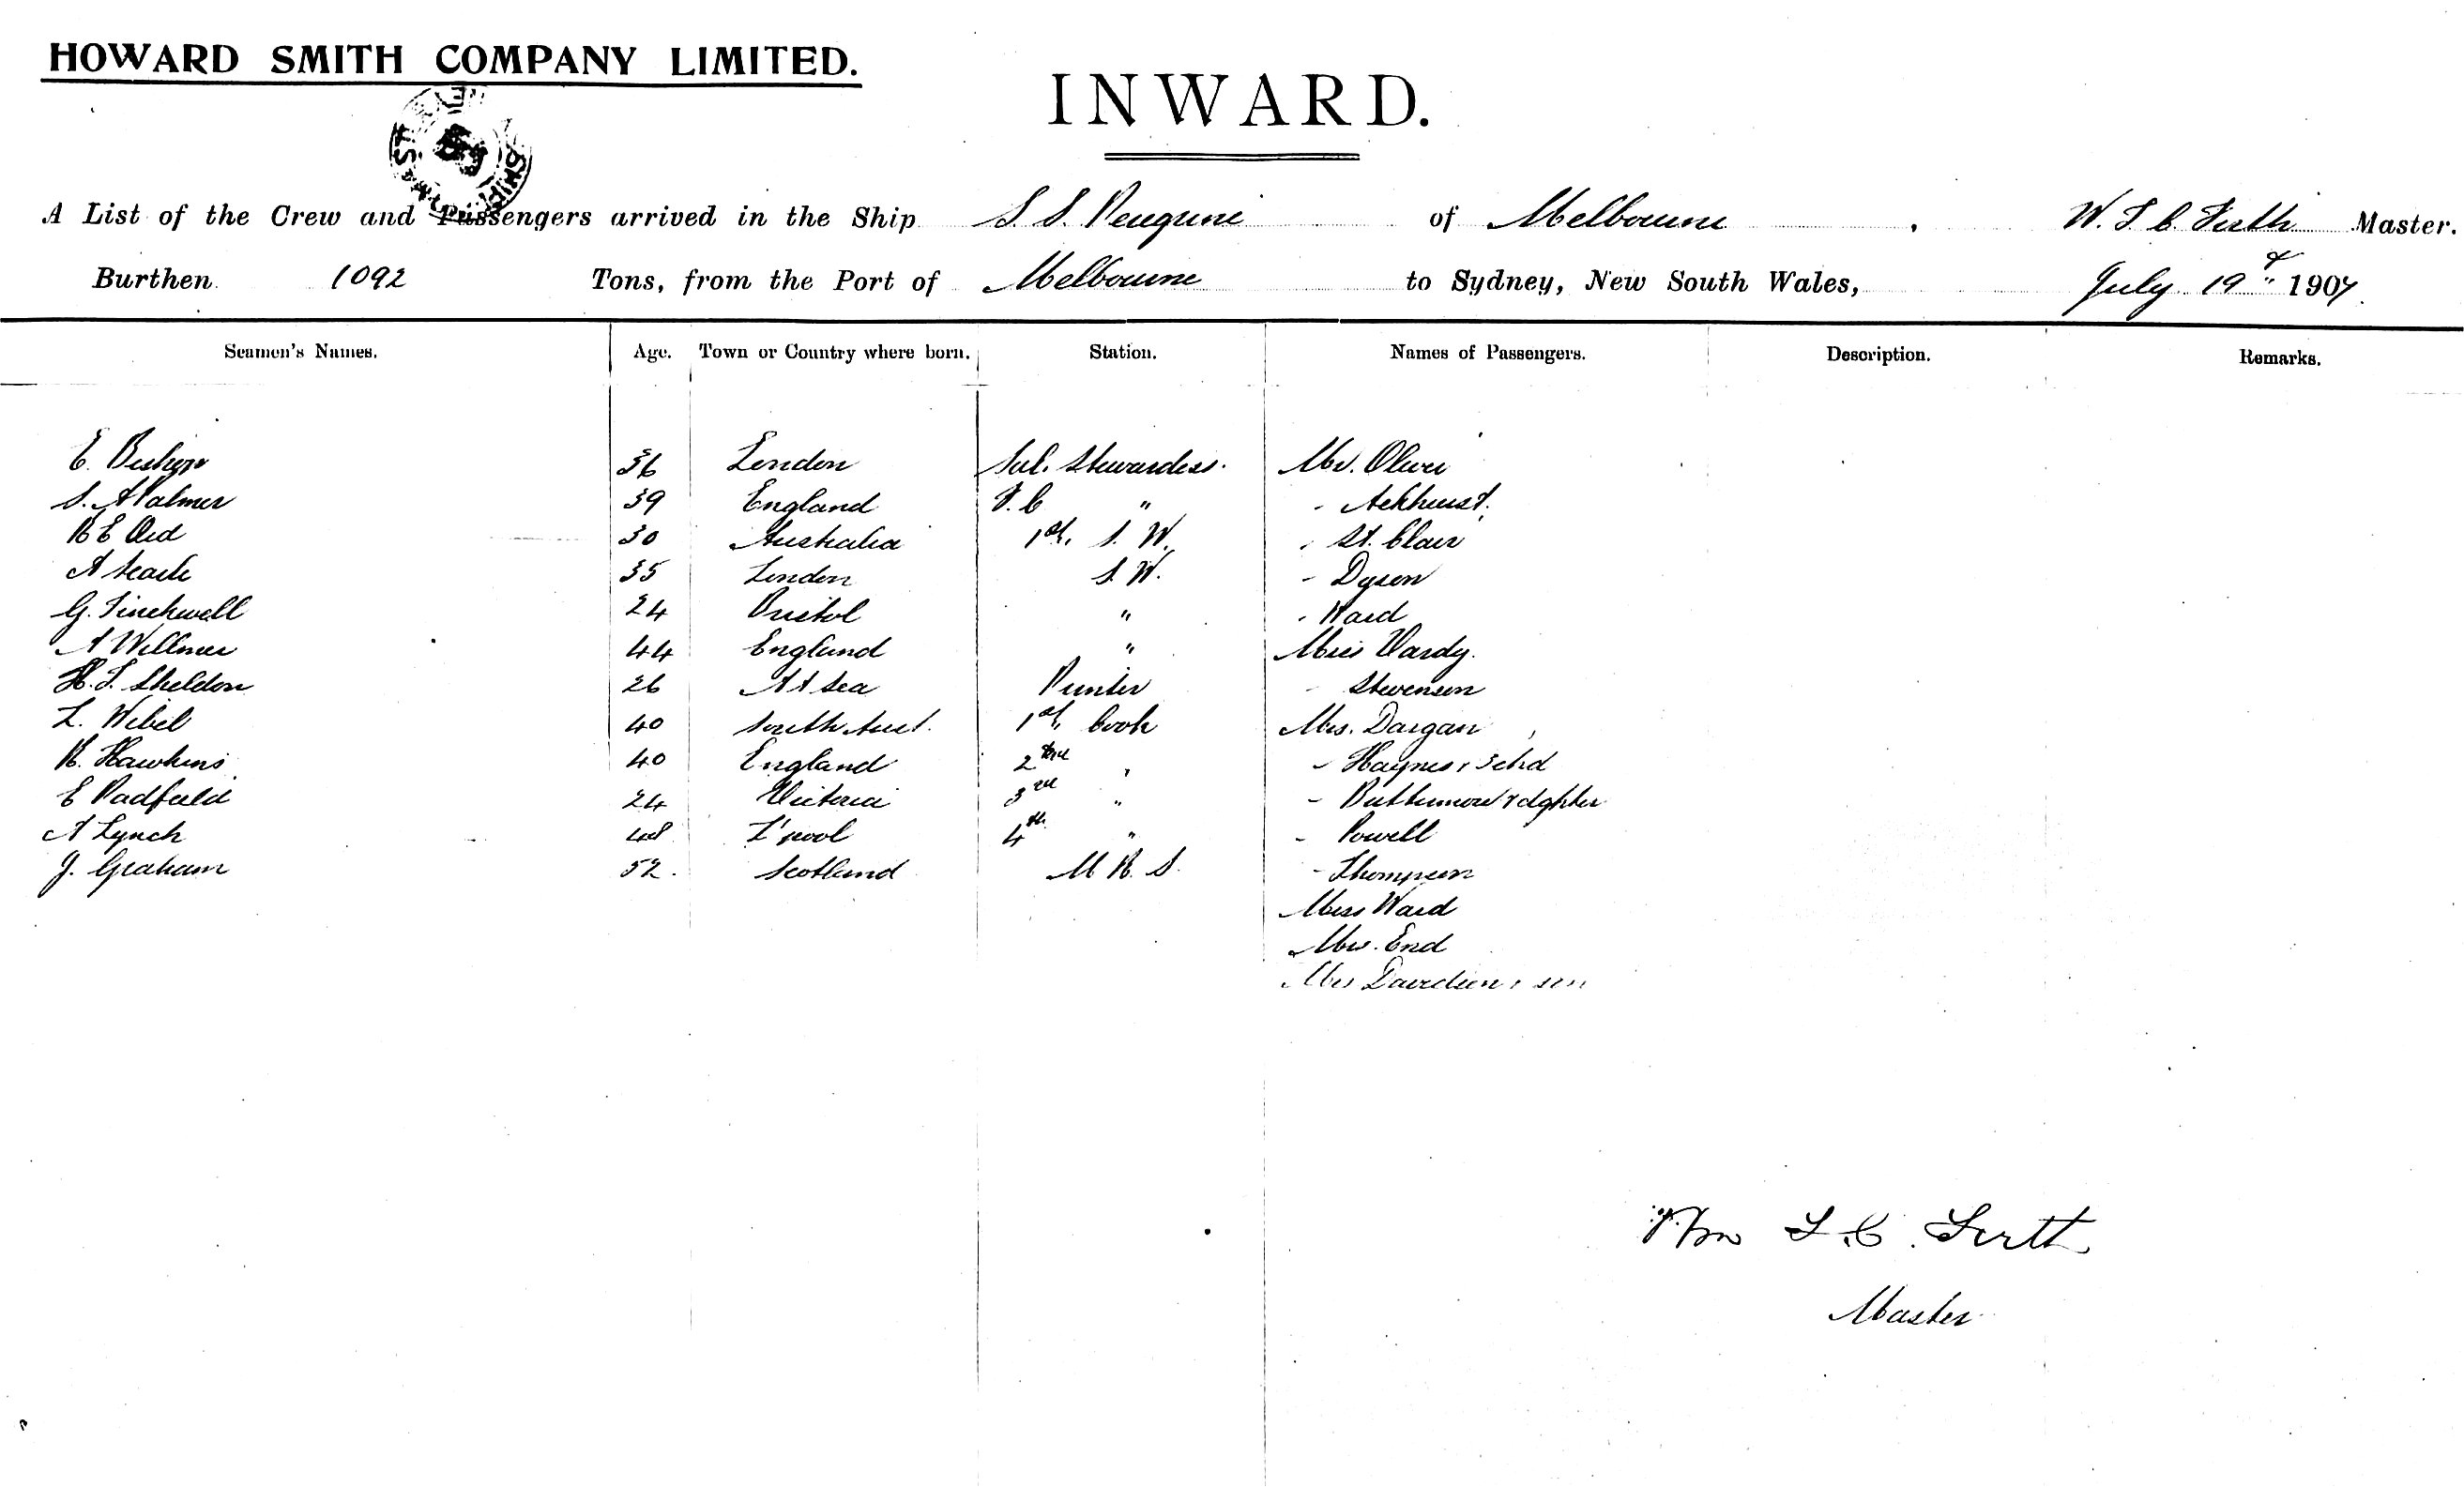 HOWARD SMITH COMPANY LIMITED.
INWARD.
A List of the Crew and Passengers arrived in the Ship S.S. Peregrine of Melbourne, W. T. C. Firth Master.
Burthen 1092 Tons, from the Port of Melbourne to Sydney, New South Wales, July 19th 1907
Seamen's Names. Age. Town or Country where born. Station. Names of Passengers. Description. Remarks.
E. Bishop 36 London Sal. Stewardess. Mrs. Oliver
S. A Palmer 39 England F.C " - Ackhurst.
R E Ord 30 Australia 1st. S. W. - St. Clair
A Searle 35 London S. W. - Dyson
G. Tinckwell 24 Bristol " - Ward
A Willmer 44 England " Miss Hardy.
H. T. Sheldon 26 At Sea Printer - Stevenson
L. Wibel 40 South Aust. 1st Cook Mrs. Dargan
R. Hawkins 40 England 2nd " - Haynes & 3 chd
E Padfield 24 Victoria 3rd " - & dghter
A Lynch 48 L'pool 4th " - Powell
J. Graham 52. Scotland M R. S. - Thompson
Miss Ward
Mrs. End
Mrs Davidson & son
Wm T. C. Firth
Master